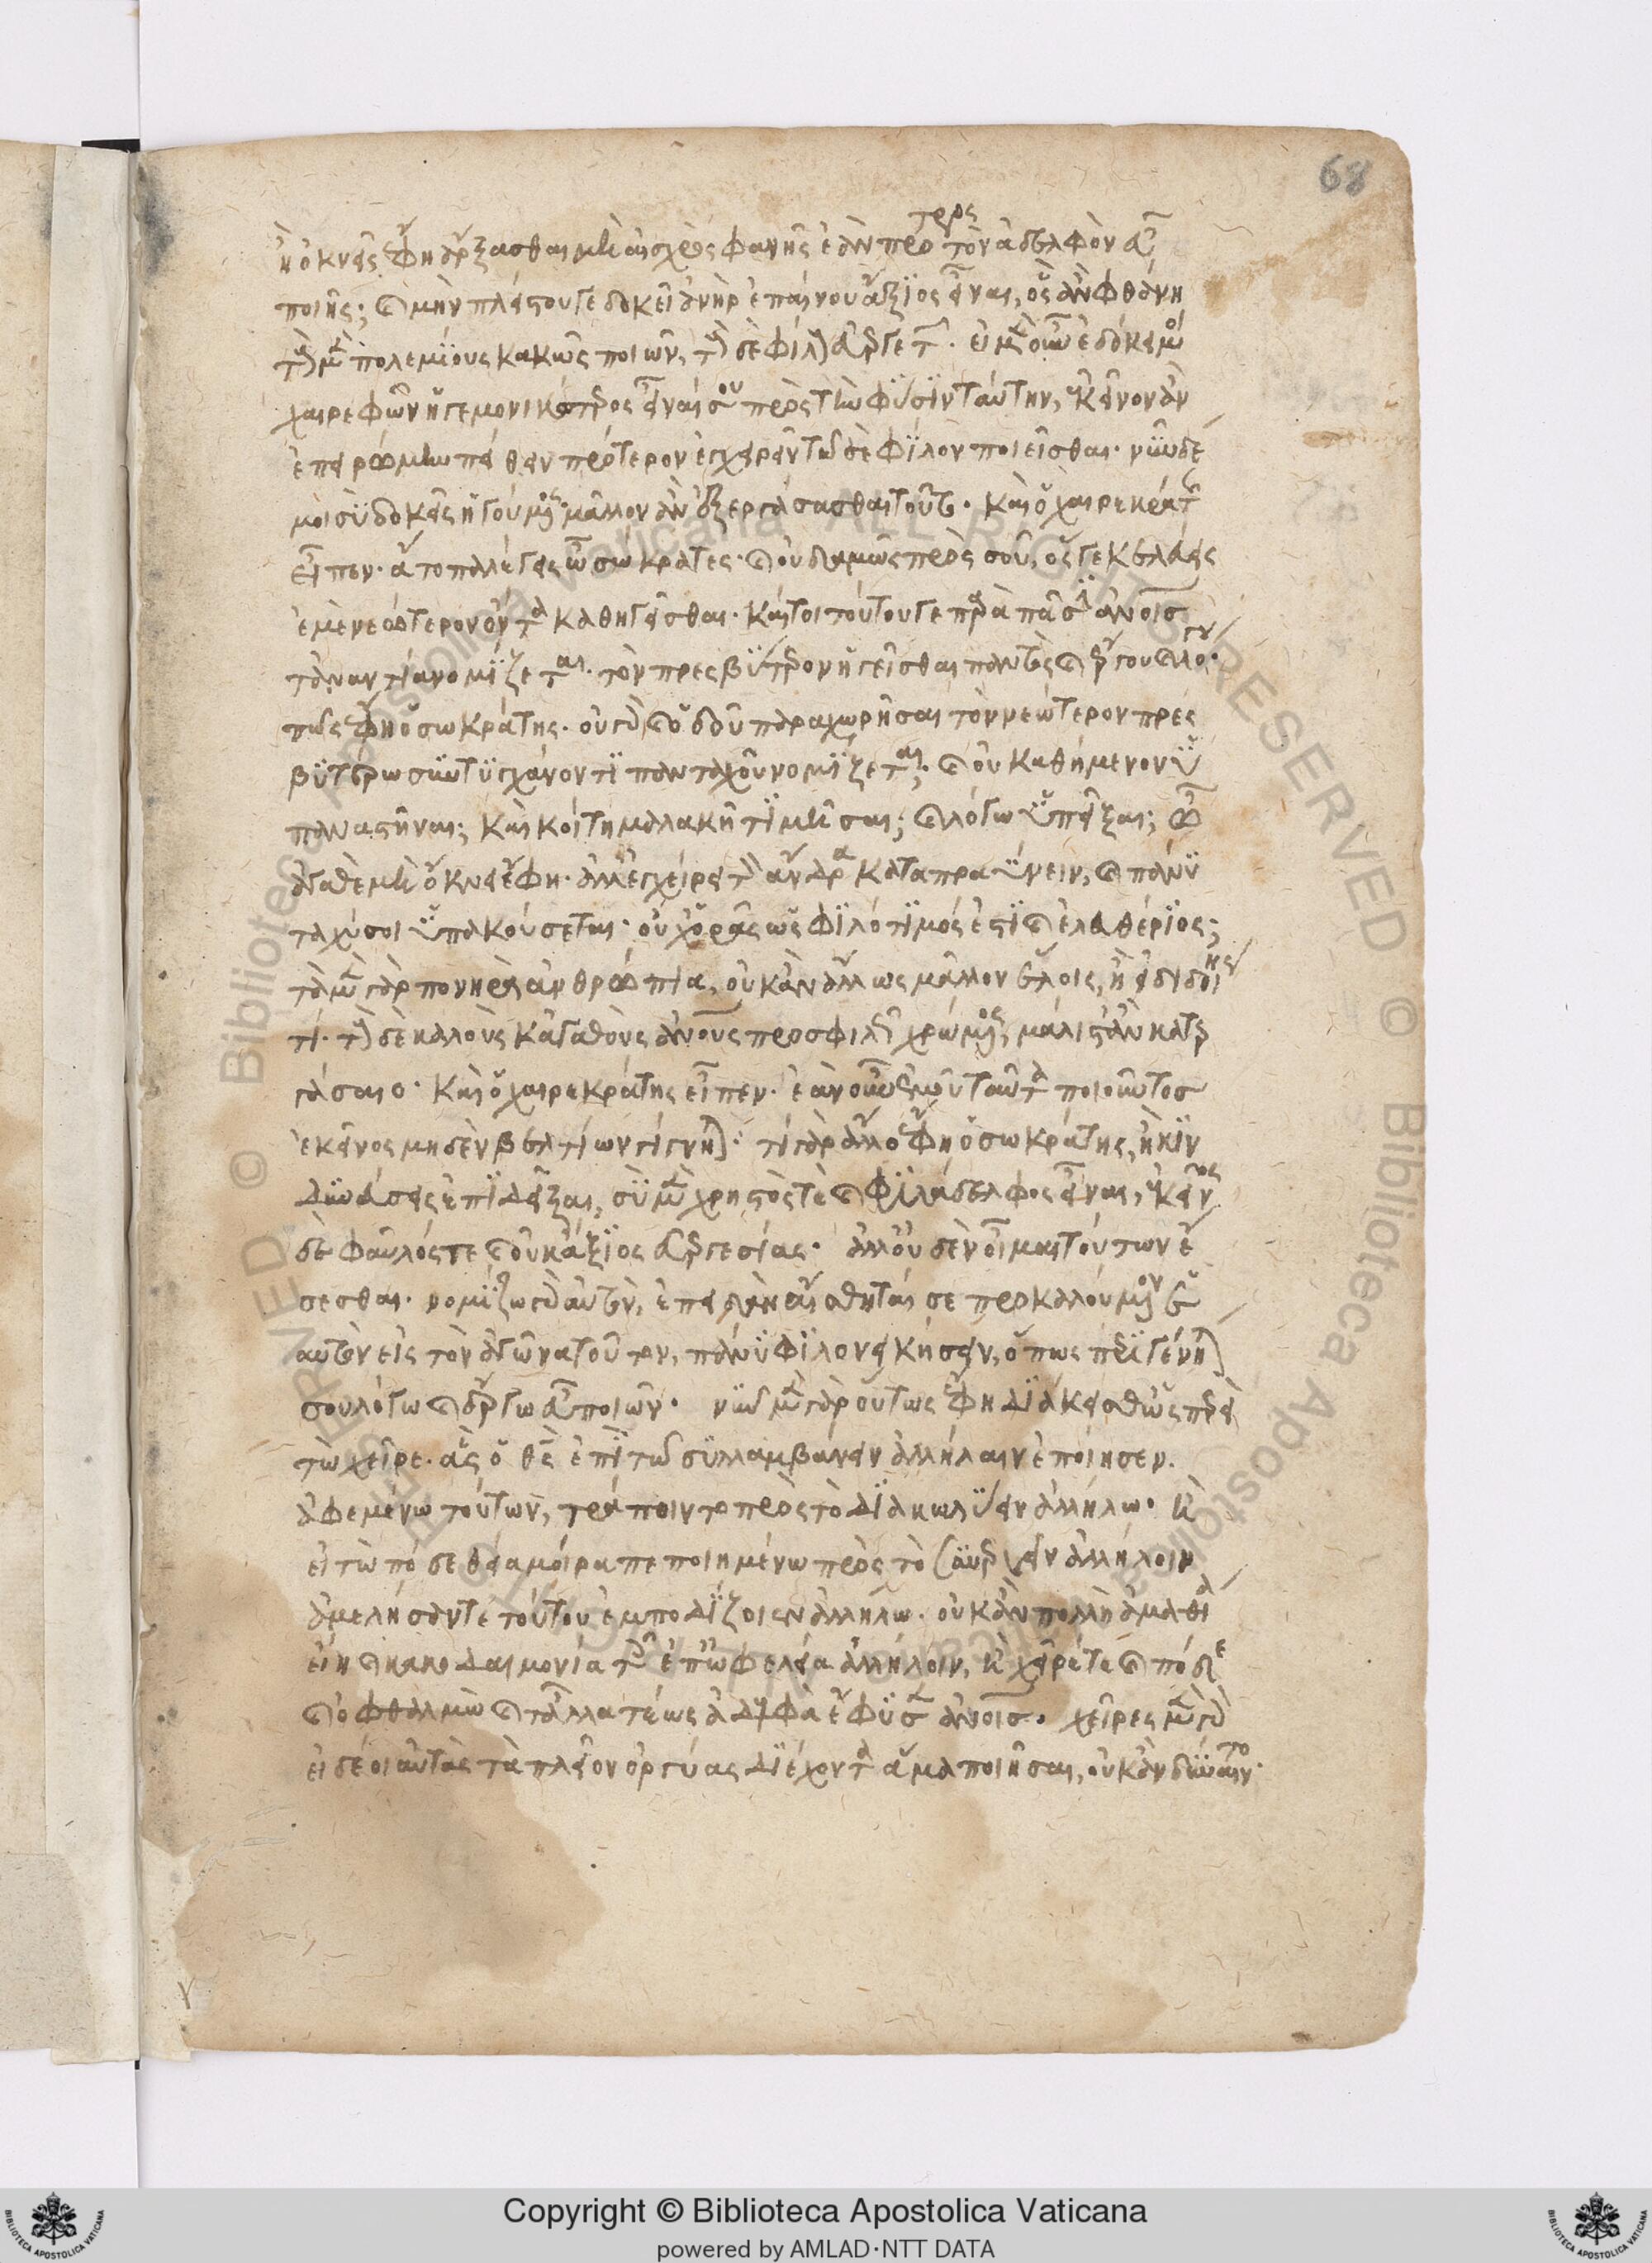 68
ἢ ὀκνεῖς ἔφη ἄρξασθαι μὴ αἰσχρὸς φανῇς ἐὰν πρότερος τὸν ἀδελφὸν εὖ
ποιῇς; καὶ μὴν πλείστου γε δοκεῖ ἀνὴρ ἐπαίνου ἄξϊος εἶναι, ὃς ἂν φθάνῃ
τοὺς μὲν πολεμίους κακῶς ποιῶν, τοὺς δὲ φίλους εὐεργετῶν. εἰ μὲν οὖν ἐδόκει μοι
χαιρεφῶν ἡγεμονικώτερος εἶναι σοῦ πρὸς τὴν φύσϊν ταύτην, ἐκεῖνον ἂν
ἐπειρώμην πείθειν πρότερον ἐγχειρεῖν τῶ σὲ φϊλον ποιεῖσθαι. νῦν δέ
μοι σὺ δοκεῖς ἡγούμενος μᾶλλον ἂν ἐξεργάσασθαι τοῦτο. καὶ ὁ χαιρεκράτης
εἶπεν. ἄτοπα λέγεις ὦ σώκρατες. καὶ οὐδαμῶς πρὸς σοῦ, ὅς γε κελεύεις
ἐμὲ νεώτερον ὄντα καθηγεῖσθαι. καίτοι τούτου γε παρὰ πᾶσιν ἀνθρώποις
τἀναντία νομίζεται. τὸν πρεσβύτερον ἡγεῖσθαι παντὸς καὶ ἔργου καὶ λόγου.
πῶς ἔφη ὁ σωκράτης. οὐ γὰρ καὶ ὁδοῦ παραχωρῆσαι τὸν νεώτερον πρεσ
βϋτέρω συντϋγχάνοντι πανταχοῦ νομϊζεται; καὶ οὐ καθήμενον ὑ
παναστῆναι; καὶ κοίτη μαλακῆ τιμῆσαι; καὶ λόγω ὑπεῖξαι; ὦ
ἀγαθὲ μὴ ὄκνει ἔφη. ἀλλ' ἐγχείρει τὸν ἄνδρα καταπραΰνειν, καὶ πάνϋ
ταχύ σοι ὑπακούσεται. οὐχ ὁρᾶς ὡς φϊλότϊμός ἐστϊ καὶ ἐλευθέριος;
τὰ μὲν γὰρ πονηρὰ ἀνθρώπια, οὐκ ἂν ἄλλως μᾶλλον ἕλοις, ἢ εἰ διδοίης
τί. τοὺς δὲ καλοὺς κἀγαθοὺς ἀνθρώπους προσφιλῶς χρώμενος, μάλιστ' ἂν κατερ
γάσαιο. καὶ ὁ χαιρεκράτης εἶπεν. ἐὰν οὖν ἐμοῦ ταῦτα ποιοῦντοσ
ἐκεῖνος μηδὲν βελτίων γίγνηται. τί γὰρ ἄλλο ἔφη ὁ σωκράτης, ἢ κιν
δυνεύσεις ἐπιδεῖξαι, σὺ μὲν χρηστός τε καὶ φϊλάδελφος εἶναι, ἐκεῖνος
δὲ φαῦλός τε καὶ οὐκ ἄξιος εὐεργεσίας. ἀλλ' οὐδὲν οἶμαι τούτων ἔ
σεσθαι. νομίζω γὰρ αὐτὸν, ἐπειδὰν αἴσθηταί σε προκαλούμενον ἑ
αυτὸν εἰς τὸν ἀγῶνα τοῦτον, πάνϋ φϊλονεικήσειν, ὅπως περιγένηται
σου λόγω καὶ ἔργω εὖ ποιῶν. νῦν μὲν γὰρ οὕτως ἔφη διάκεισθον ὥσπερ εἰ
τὼ χεῖρε. ἃς ὁ θεὸς ἐπὶ τῶ συλλαμβάνειν ἀλλήλαιν ἐποίησεν.
ἀφεμένω τούτων, τράποιντο πρὸς τὸ διακωλύειν ἀλλήλω. ἢ
εἰ τὼ πόδε θεία μοίρα πεποιημένω πρὸς τὸ συνεργεῖν ἀλλήλοιν
ἀμελήσαντε τούτου ἐμποδίζοιεν ἀλλήλω. οὐκ ἂν πολλὴ ἀμαθία
εἴη καὶ κακοδαιμονία τὰ ἐπ' ὠφελεία ἀλλήλοιν, ἢ χεῖρέ τε καὶ πόδε
καὶ ὀφθαλμὼ καὶ τἄλλα τέως ἀδελφὰ ἔφϋσεν ἀνθρώποις. χεῖρες μὲν γὰρ
εἰ δέοι αὐτὰς τὰ πλεῖον ὀργυιᾶς διέχοντα ἅμα ποιῆσαι, οὐκ ἂν δύναιντο.
Copyright © Biblioteca Apostolica Vaticana
powered by AMLAD·NTT DATA